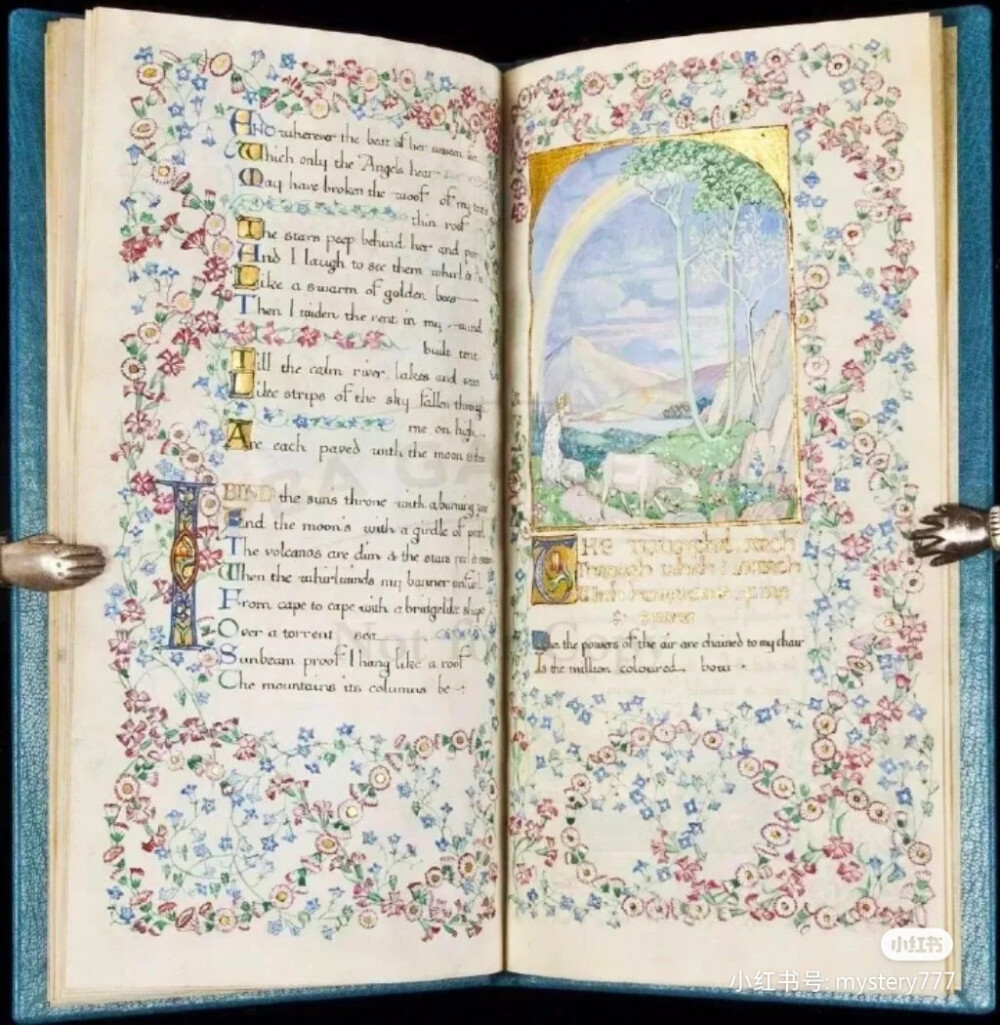 And wherever the beat of her unseen
Which only the Angels hear
May have broken the woof of my
thin roof
The stars peep behind her and
And I laugh to see them whirl &
Like a swarm of golden bees
Then I widen the rent in my wind
built tent
Till the calm river, lakes and seas
Like strips of the sky fallen through
me on high
Are each paved with the moon &
I BIND the suns throne with a burning
And the moon's with a girdle of pearl
The volcanos are dim & the stars reel &
When the whirlwinds my banner unfurl
From cape to cape with a bridgelike shape
Over a torrent sea
Sunbeam proof I hang like a roof
The mountains its columns be
THE triumphal arch
Through which I march
With hurricane
& snow
the powers of the air are chained to my chair
Is the million coloured bow
Not for
小红书
小红书号: mystery777